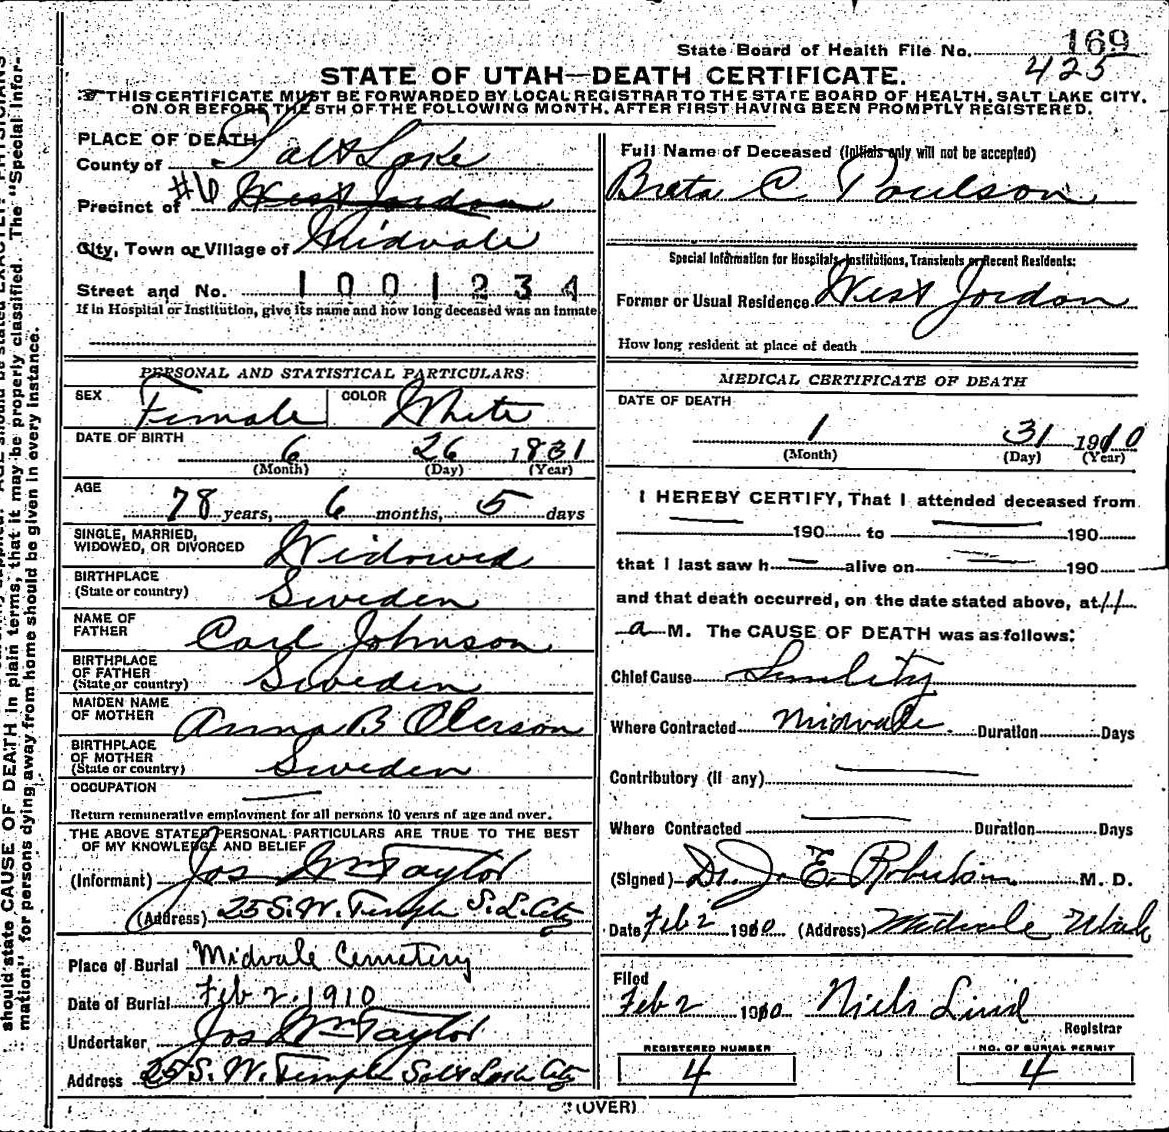 State Board of Health File No. 169
425
STATE OF UTAH—DEATH CERTIFICATE.
THIS CERTIFICATE MUST BE FORWARDED BY LOCAL REGISTRAR TO THE STATE BOARD OF HEALTH, SALT LAKE CITY,
ON OR BEFORE THE 5TH OF THE FOLLOWING MONTH, AFTER FIRST HAVING BEEN PROMPTLY REGISTERED.
PLACE OF DEATH
County of Salt Lake
Precinct of #6 West Jordan
City, Town or Village of Midvale
Street and No. 1001234
If in Hospital or Institution, give its name and how long deceased was an inmate
PERSONAL AND STATISTICAL PARTICULARS
SEX Female COLOR White
DATE OF BIRTH
6 26 1831
(Month) (Day) (Year)
AGE
78 years, 6 months, 5 days
SINGLE, MARRIED,
WIDOWED, OR DIVORCED Widowed
BIRTHPLACE
(State or country) Sweden
NAME OF
FATHER Carl Johnson
BIRTHPLACE
OF FATHER
(State or country) Sweden
MAIDEN NAME
OF MOTHER Anna B Olerson
BIRTHPLACE
OF MOTHER
(State or country) Sweden
OCCUPATION
Return remunerative employment for all persons 10 years of age and over.
THE ABOVE STATED PERSONAL PARTICULARS ARE TRUE TO THE BEST
OF MY KNOWLEDGE AND BELIEF
(Informant) Jos Wm Taylor
(Address) 25 S. W. Temple S. L. City
Place of Burial Midvale Cemetery
Date of Burial Feb 2, 1910
Undertaker Jos Wm Taylor
Address 25 S. W. Temple Salt Lake City
Full Name of Deceased (Initials only will not be accepted)
Breta C Poulson
Special Information for Hospitals, Institutions, Transients or Recent Residents:
Former or Usual Residence West Jordan
How long resident at place of death
MEDICAL CERTIFICATE OF DEATH
DATE OF DEATH
1 31 1910
(Month) (Day) (Year)
I HEREBY CERTIFY, That I attended deceased from
190 to 190
that I last saw h alive on 190
and that death occurred, on the date stated above, at 11
a M. The CAUSE OF DEATH was as follows:
Chief Cause Senility
Where Contracted Midvale. Duration Days
Contributory (if any)
Where Contracted Duration Days
(Signed) Dr. J. E. Robertson M. D.
Date Feb 2 1910 (Address) Midvale Utah
Filed
Feb 2 1910 Niels Lind
Registrar
REGISTERED NUMBER
4
NO. OF BURIAL PERMIT
4
(OVER)
should state CAUSE OF DEATH in plain terms, that it may be properly classified. The "Special Infor-
mation" for persons dying away from home should be given in every instance.